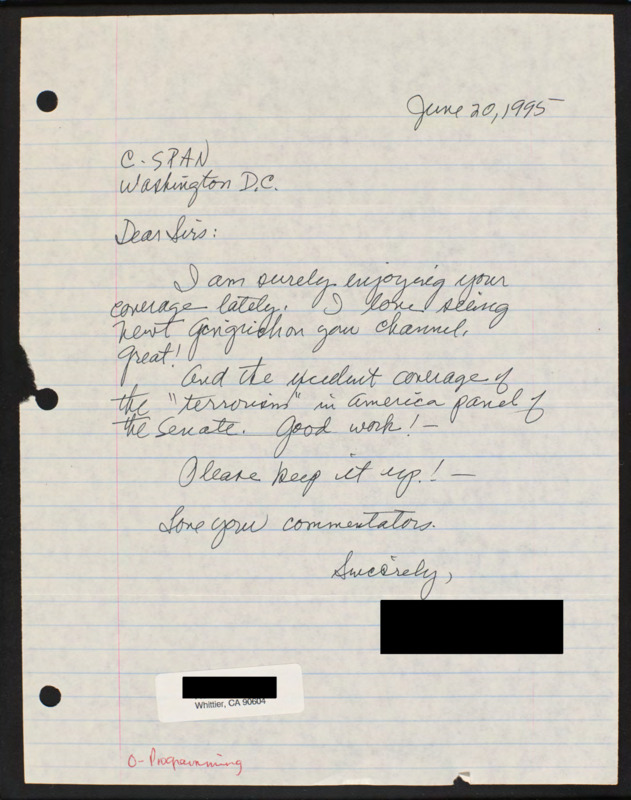 June 20, 1995
C-SPAN
Washington D.C.
Dear Sirs:
I am surely enjoying your
coverage lately. I love seeing
Newt Gingrich on your channel,
great!
And the excellent coverage of
the "terrorism" in America panel of
the Senate. Good work! —
Please keep it up! —
Love your commentators.
Sincerely,
Whittier, CA 90604
O- Programming